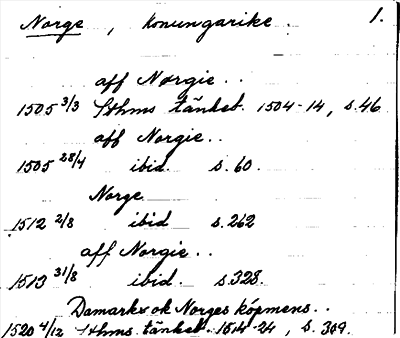 Norge, konungarike. 1.
aff Nørgie..
1505 3/3 Sthms tänkeb. 1504-14, s.46
aff Norgie..
1505 28/4 ibid. s.60.
Norge
1512 2/8 ibid s.262
aff Norgie..
1513 31/8 ibid. s.328.
Damarks ok Norges köpmens..
1520 4/12 Sthms tänkeb. 1514-24, s. 309.